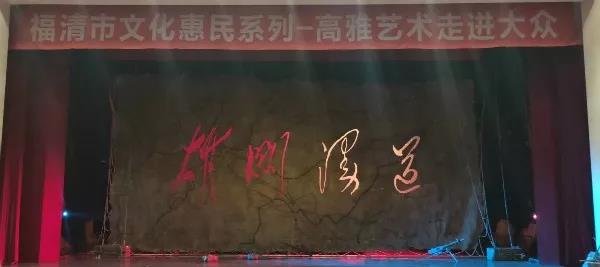 福清市文化惠民系列-高雅艺术走进大众
雄关漫道